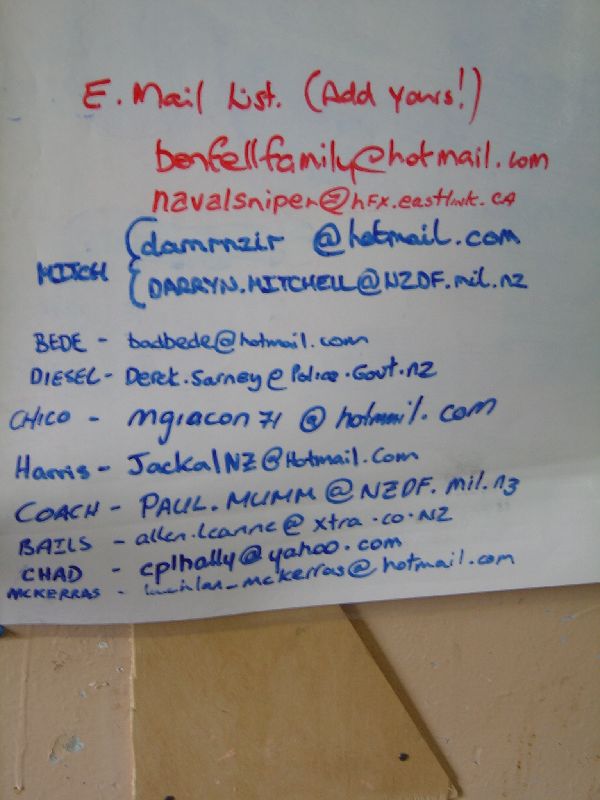 E. Mail List. (Add yours!)
benfellfamily@hotmail.com
navalsniper@hfx.eastlink.CA
damrnzir @hotmail.com
MITCH
DARRYN.MITCHELL@NZDF.mil.nz
BEDE - badbede@hotmail.com
DIESEL- Derek.Sarney@Police.Govt.nz
CHICO - mgiacon71@hotmail.com
Harris- JackalNZ@Hotmail.Com
COACH - PAUL.MUMM@NZDF.mil.nz
BAILS - allen.leanne@xtra.co.NZ
CHAD - cplhally@yahoo.com
MCKERRAS - lachlan_mckerras@hotmail.com